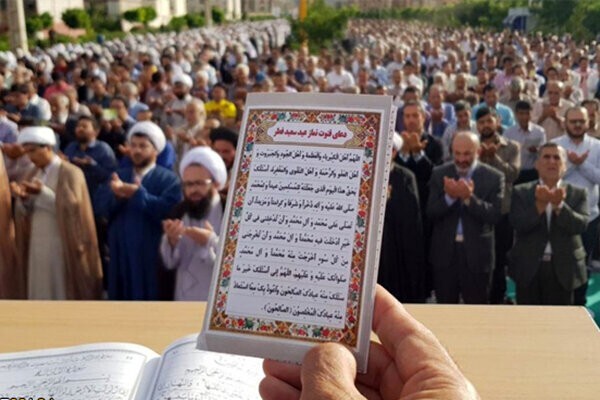 دعای قنوت نماز عید سعید فطر
اَللّهُمَّ اَهْلَ الْكِبْرِياءِ وَالْعَظَمَةِ وَ اَهْلَ الْجُودِ وَالْجَبَرُوتِ وَ
اَهْلَ الْعَفْوِ وَالرَّحْمَةِ وَ اَهْلَ التَّقْوى وَالْمَغْفِرَةِ اَسْئَلُكَ
بِحَقِّ هذَا الْيَوْمِ الَّذى جَعَلْتَهُ لِلْمُسْلِمينَ عيداً وَ لِمُحَمَّدٍ
صَلَّى اللهُ عَلَيْهِ وَ آلِهِ ذُخْراً وَ شَرَفاً وَ كَرامَةً وَ مَزيداً اَنْ
تُصَلِّىَ عَلى مُحَمَّدٍ وَ آلِ مُحَمَّدٍ وَ اَنْ تُدْخِلَنى فى كُلِّ
خَيْرٍ اَدْخَلْتَ فيهِ مُحَمَّداً وَ آلَ مُحَمَّدٍ وَ اَنْ تُخْرِجَنى
مِنْ كُلِّ سُوءٍ اَخْرَجْتَ مِنْهُ مُحَمَّداً وَ آلَ مُحَمَّدٍ
صَلَواتُكَ عَلَيْهِ وَ عَلَيْهِمْ اَللّهُمَّ اِنّى اَسْئَلُكَ خَيْرَ ما
سَئَلَكَ مِنْهُ عِبادُكَ الصّالِحُونَ وَ اَعُوذُ بِكَ مِمَّا اسْتَعاذَ
مِنْهُ عِبادُكَ الْمُخْلَصُونَ (الصّالِحُونَ).